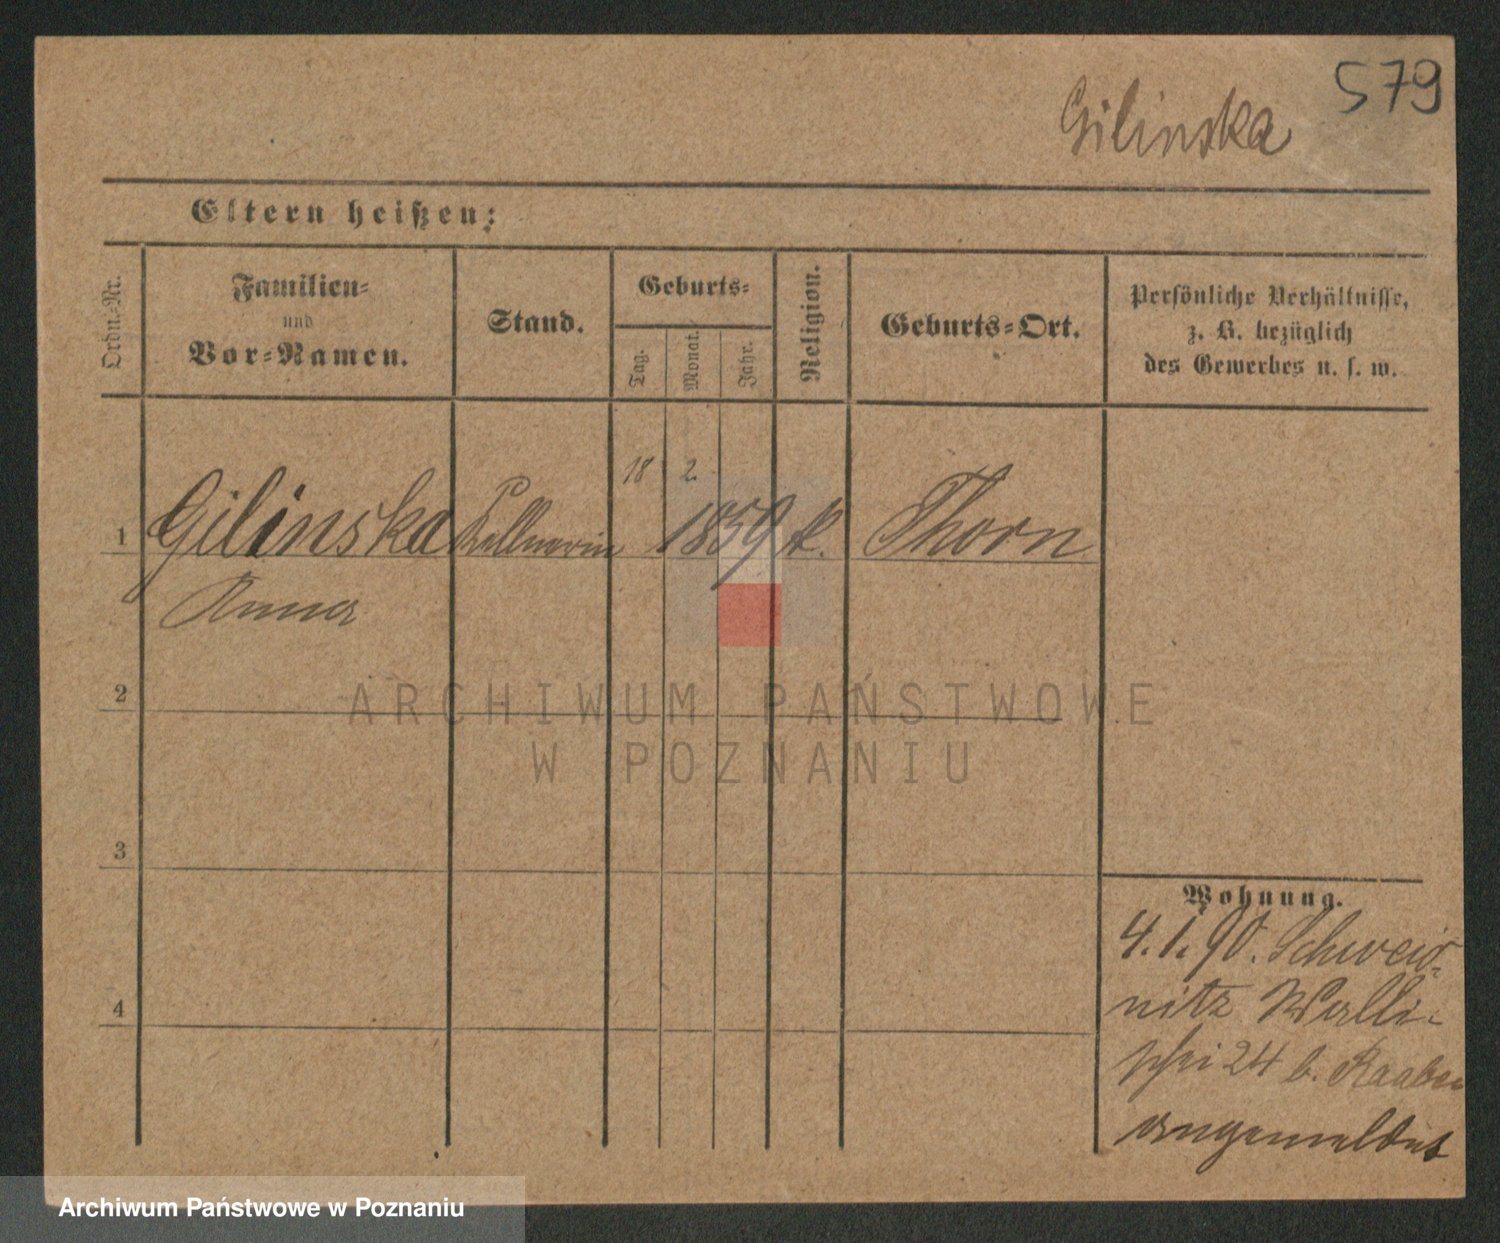 579
Gilinska
Eltern heißen:
Ordn.-Nr.
Familien-
und
Vor-Namen.
Stand.
Geburts-
Tag.
Monat.
Jahr.
Religion.
Geburts-Ort.
Persönliche Verhältnisse,
z. B. bezüglich
des Gewerbes u. s. w.
18 2.
1 Gilinska Kellnerin 1859 k. Thorn
Anna
2
ARCHIWUM PAŃSTWOWE
W POZNANIU
3
Wohnung.
4.1.90. Schweid-
nitz Walli-
4
24 b. Raaben
angemeldet
Archiwum Państwowe w Poznaniu